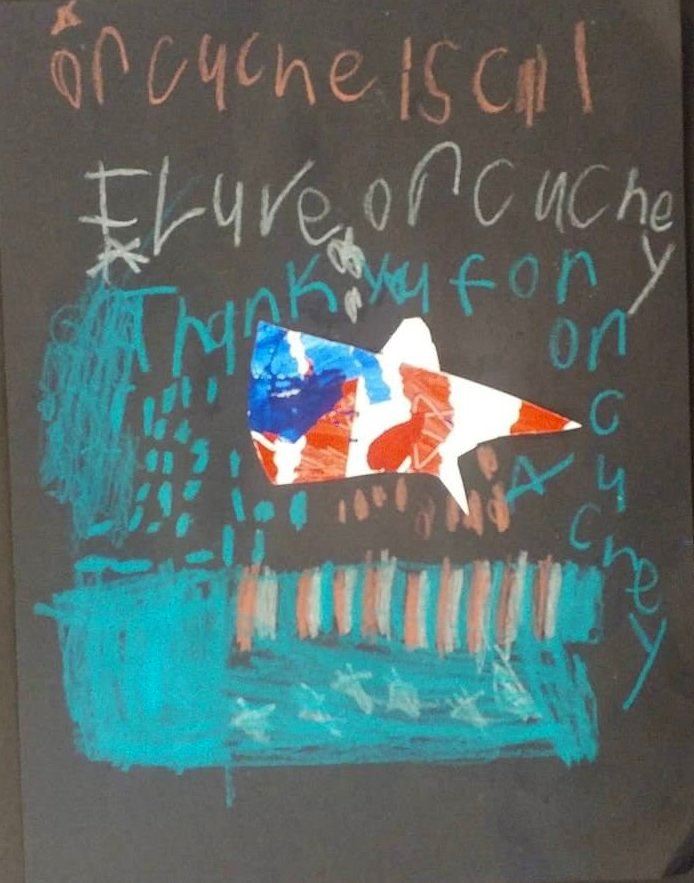 or cuche is call
I Luve or cuche y
Thank yu for
or cuchey